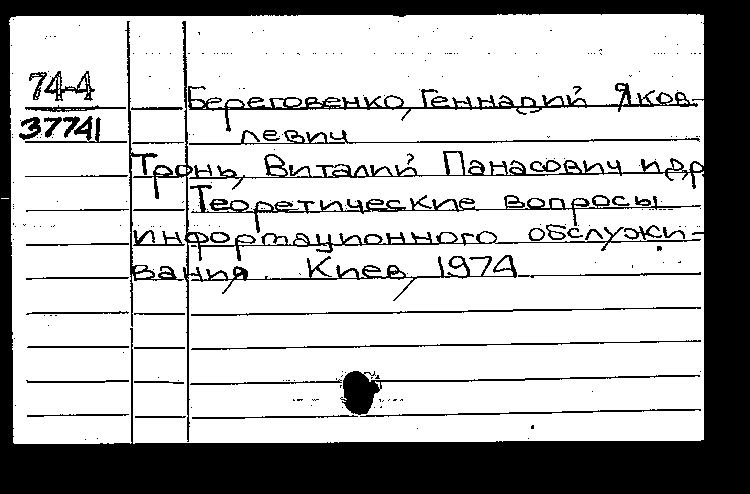 74-4
37741
Береговенко, Геннадий Яков-
левич
Тронь, Виталий Панасович и др
Теоретические вопросы
информационного обслужи-
вания. Киев, 1974